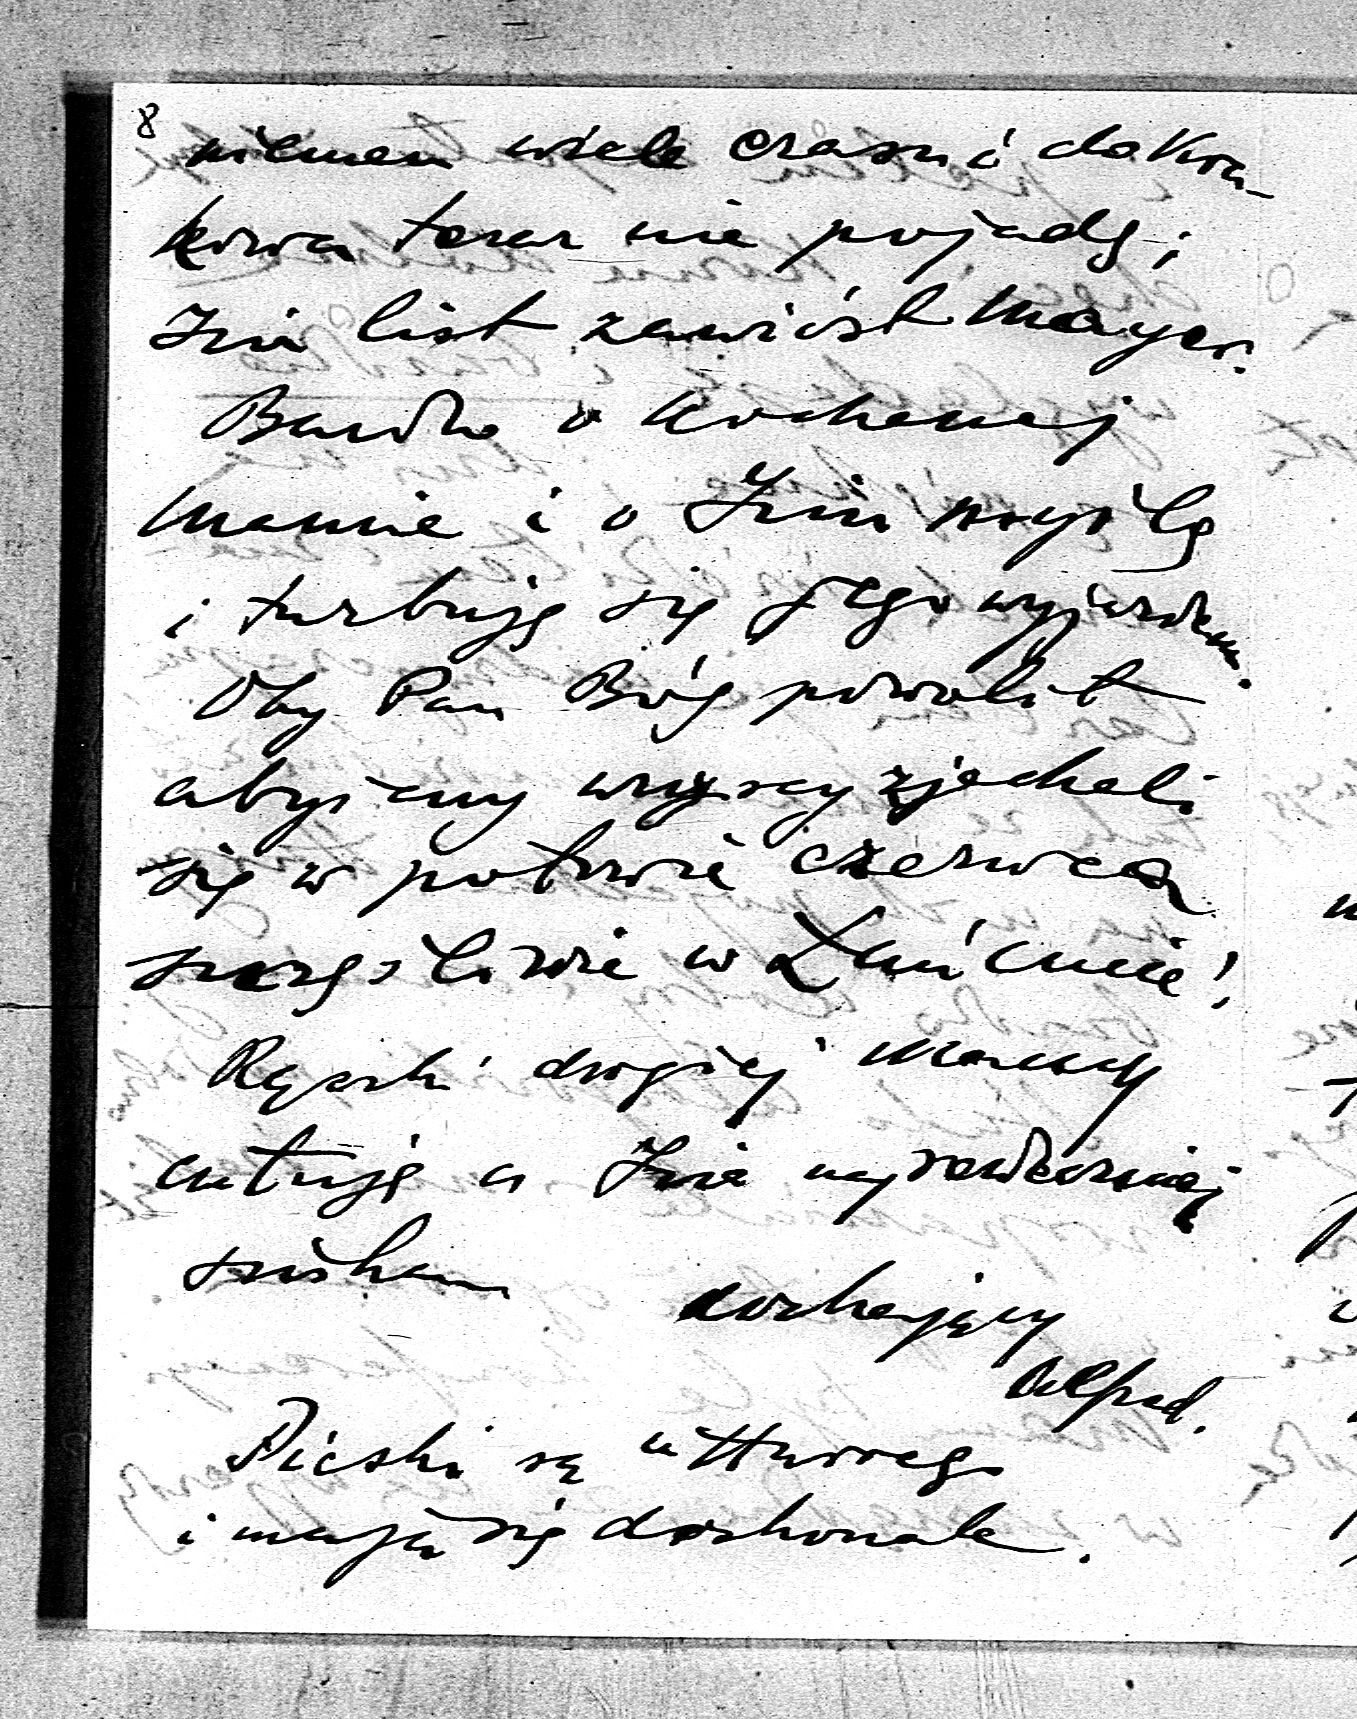 8
niemam wiele czasu i do Kra-
kowa teraz nie pojadę;
Ziu list zawiózł Mayer.
Bardzo o kochanej
Mamie i o Ziu myślę
i turbuję się Jego wyjazdem.
Oby Pan Bóg pozwolił
abyśmy wszyscy zjechali
się w połowie czerwca
szczęśliwie w Łańcucie!
Rączki drogiej Mamy
całuję a Zia najserdeczniej
ściskam
kochający
Alfred.
Pieski są u Hurreg
i mają się doskonale.